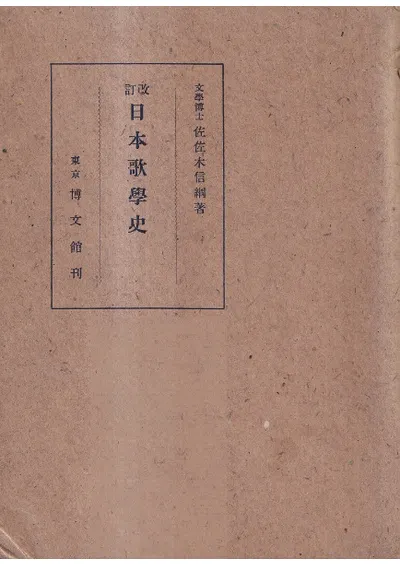 文學博士 佐佐木信綱著
改訂 日本歌學史
東京 博文館刊